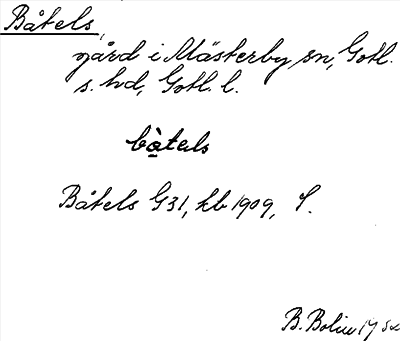 Båtels,
gård i Mästerby sn, Gotl.
s. hd, Gotl. l.
bàtals
Båtels G31, kb 1909, S.
B. Bolin 19